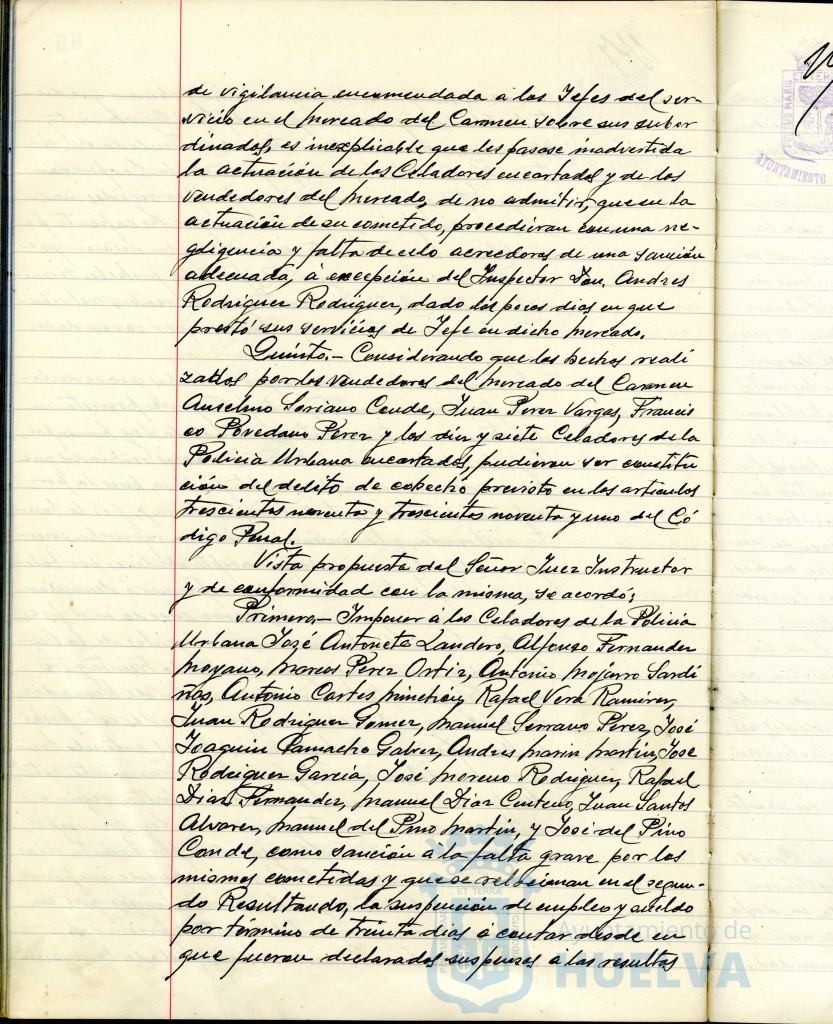 de vigilancia encomendada á los Jefes del ser-
vicio en el mercado del Carmen sobre sus subor
dinados, es inexplicable que les pasase inadvertida
la actuación de los Celadores encartados y de los
vendedores del mercado, de no admitir, que en la
actuación de su cometido, procedieran con una ne-
gdigencia y falta de celo acreedoras de una sanción
adecuada, á excepción del Inspector Don. Andres
Rodriguez Rodriguez, dado los pocos dias en que
prestó sus servicios de Jefe en dicho mercado.
Quinto.- Considerando que los hechos reali
zados por los vendedores del mercado del Carmen
Anselmo Soriano Conde, Juan Perez Vargas, Francis
co Povedano Perez y los diez y siete Celadores de la
Policia Urbana encartados, pudieran ser constitu
ción del delito de cohecho previsto en los articulos
trescientos noventa y trescientos noventa y uno del Có
digo Penal.
Vista propuesta del Señor Juez Instructor
y de conformidad con la misma, se acordó;
Primero.- Imponer á los Celadores de la Policia
Urbana José Antonete Landero, Alfonso Fernandez
Moyano, Marcos Perez Ortiz, Antonio Mojarro Sardi
ñas, Antonio Cortes Minchón, Rafael Vera Ramirez,
Juan Rodriguez Gomez, Manuel Serrano Pérez, José
Joaquin Camacho Galvez, Andres Marin Martin, Jose
Rodriguez Garcia, José Moreno Rodriguez, Rafael
Diaz Fernandez, Manuel Diaz Centeno, Juan Santos
Alvarez, Manuel del Pino Martin, y José del Pino
Conde, como sanción á la falta grave por los
mismos cometidas y que se relacionan en el segun-
do Resultando, la suspención de empleo y sueldo
por término de treinta dias á contar desde en
que fueron declarados suspensos á las resultas
Ayuntamiento de
HUELVA
AYUNTAMIENTO